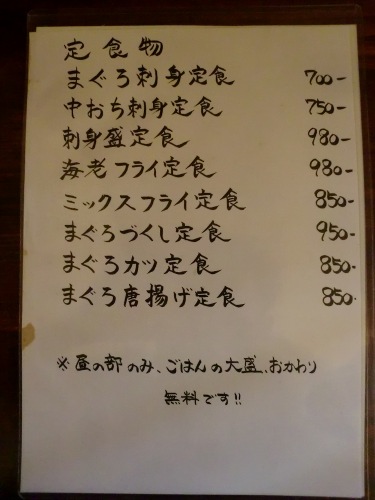 定食物
まぐろ刺身定食 700-
中おち刺身定食 750-
刺身盛定食 980-
海老フライ定食 980-
ミックスフライ定食 850-
まぐろづくし定食 950-
まぐろカツ定食 850-
まぐろ唐揚げ定食 850-
※昼の部のみ、ごはんの大盛、おかわり
無料です!!